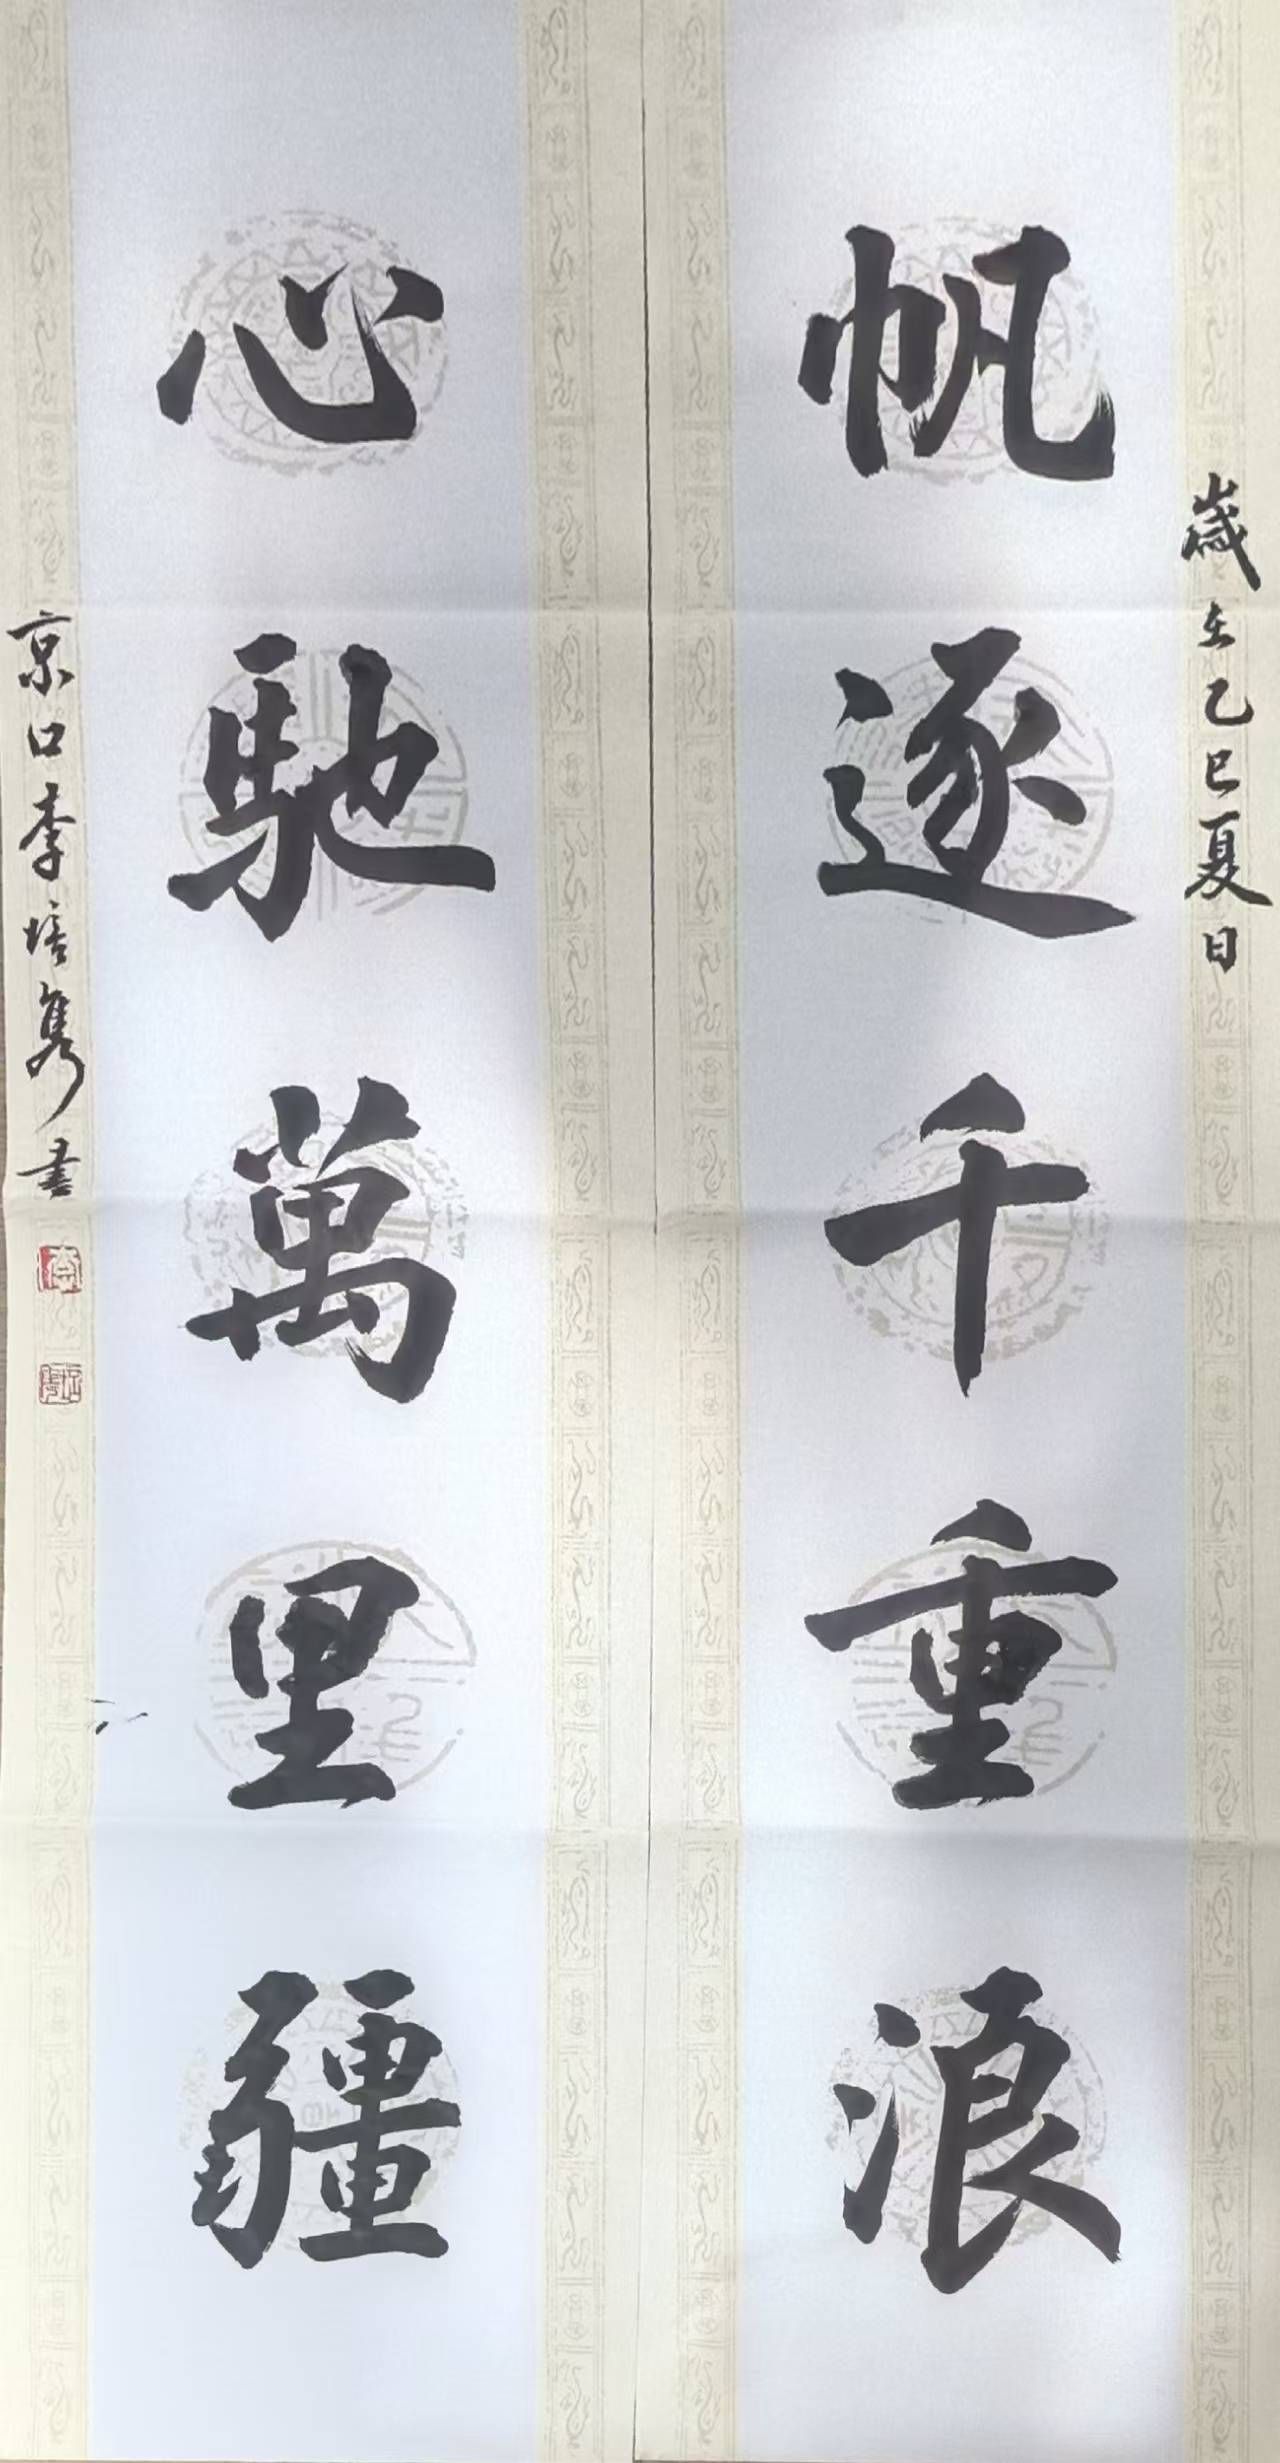 歲在乙巳夏日
帆逐千重浪
心馳萬里疆
京口李培隽書